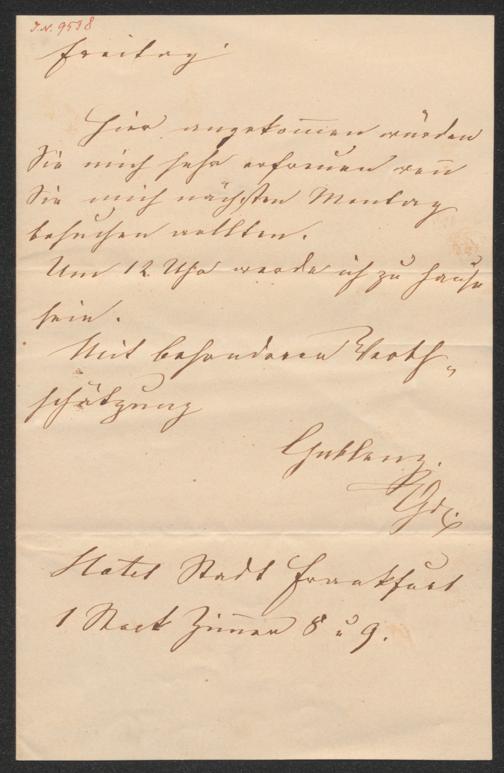 I.N. 9538
Freitag
Hier angekom̄en würden
Sie mich sehr erfreuen wen̄
Sie mich nächsten Montag
besuchen wollten.
Um 12 Uhr werde ich zu Hause
sein.
Mit besonderer Werth-
schätzung
Gablenz
Hotel Stadt Frankfurt
1 Stock Zim̄er 8 u 9.